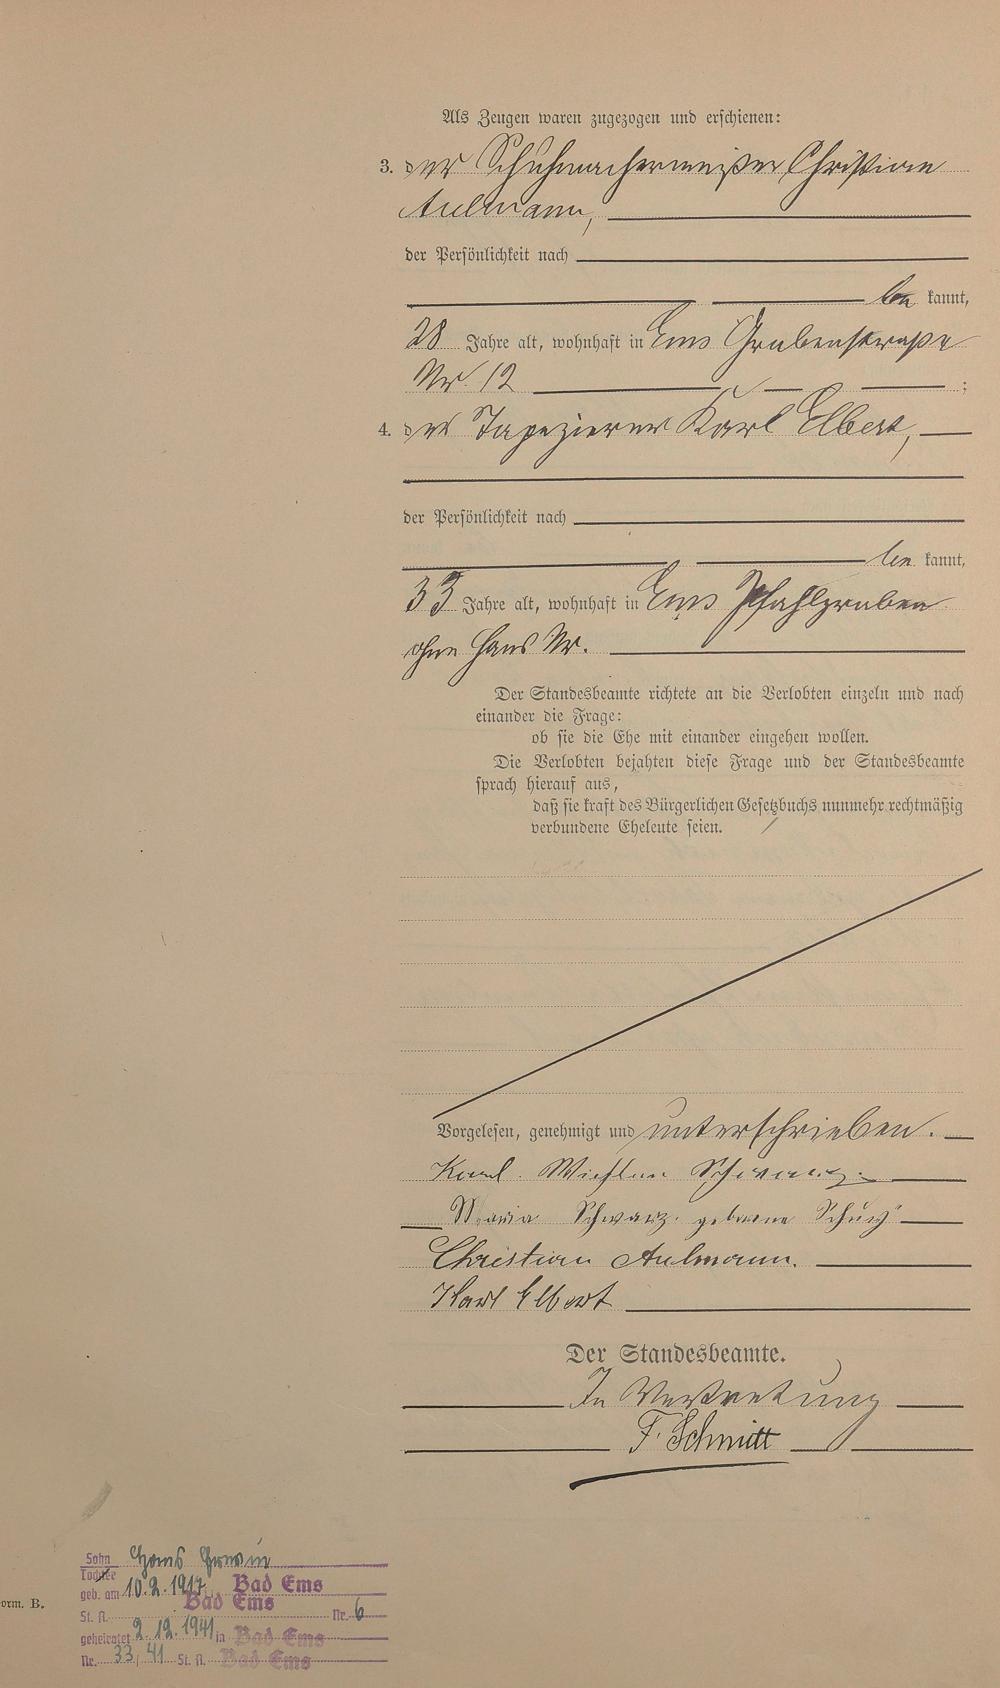 Als Zeugen waren zugezogen und erschienen:
3. der Schuhmachermeister Christian
Aulmann,
der Persönlichkeit nach
be kannt,
28 Jahre alt, wohnhaft in Ems Grabenstraße
Nr. 12 ;
4. der Tapezierer Karl Elbert,
der Persönlichkeit nach
be kannt,
33 Jahre alt, wohnhaft in Ems Pfahlgraben
ohne Haus Nr.
Der Standesbeamte richtete an die Verlobten einzeln und nach
einander die Frage:
ob sie die Ehe mit einander eingehen wollen.
Die Verlobten bejahten diese Frage und der Standesbeamte
sprach hierauf aus,
daß sie kraft des Bürgerlichen Gesetzbuchs nunmehr rechtmäßig
verbundene Eheleute seien.
Vorgelesen, genehmigt und unterschrieben.
Karl Wilhelm Schwarz.
Maria Schwarz geborene
Christian Aulmann.
Karl Elbert
Der Standesbeamte.
In Vertretung
F. Schmitt
Sohn Hans Erwin
Tochter
geb. am 10.2.1917 Bad Ems
St. A. Bad Ems Nr. 6
geheiratet 2.12.1941 in Bad Ems
Nr. 33/41 St. A. Bad Ems
orm. B.